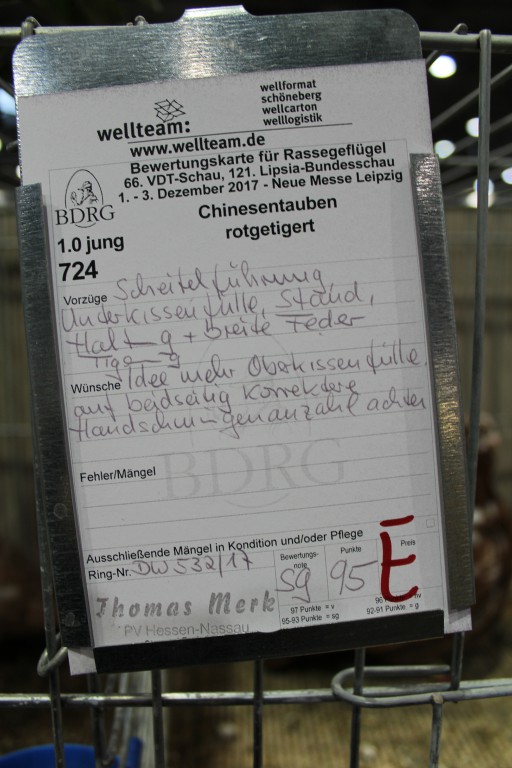 wellteam:
wellformat
schöneberg
wellcarton
welllogistik
www.wellteam.de
Bewertungskarte für Rassegeflügel
66. VDT-Schau, 121. Lipsia-Bundesschau
1. - 3. Dezember 2017 - Neue Messe Leipzig
BDRG
Chinesentauben
rotgetigert
1.0 jung
724
Vorzüge Scheitelführung,
Unterkissenfülle, Stand,
Haltg + breite Feder
Tigg
Wünsche Idee mehr Oberkissenfülle.
auf beidseitig korrektere
Handschwingenanzahl achten
Fehler/Mängel
BDRG
Ausschließende Mängel in Kondition und/oder Pflege
Ring-Nr. DW 532/17
Bewertungs-
note
sg
Punkte
95
Preis
E
Thomas Merk
PV Hessen-Nassau
97 Punkte = v
95-93 Punkte = sg
92-91 Punkte = g